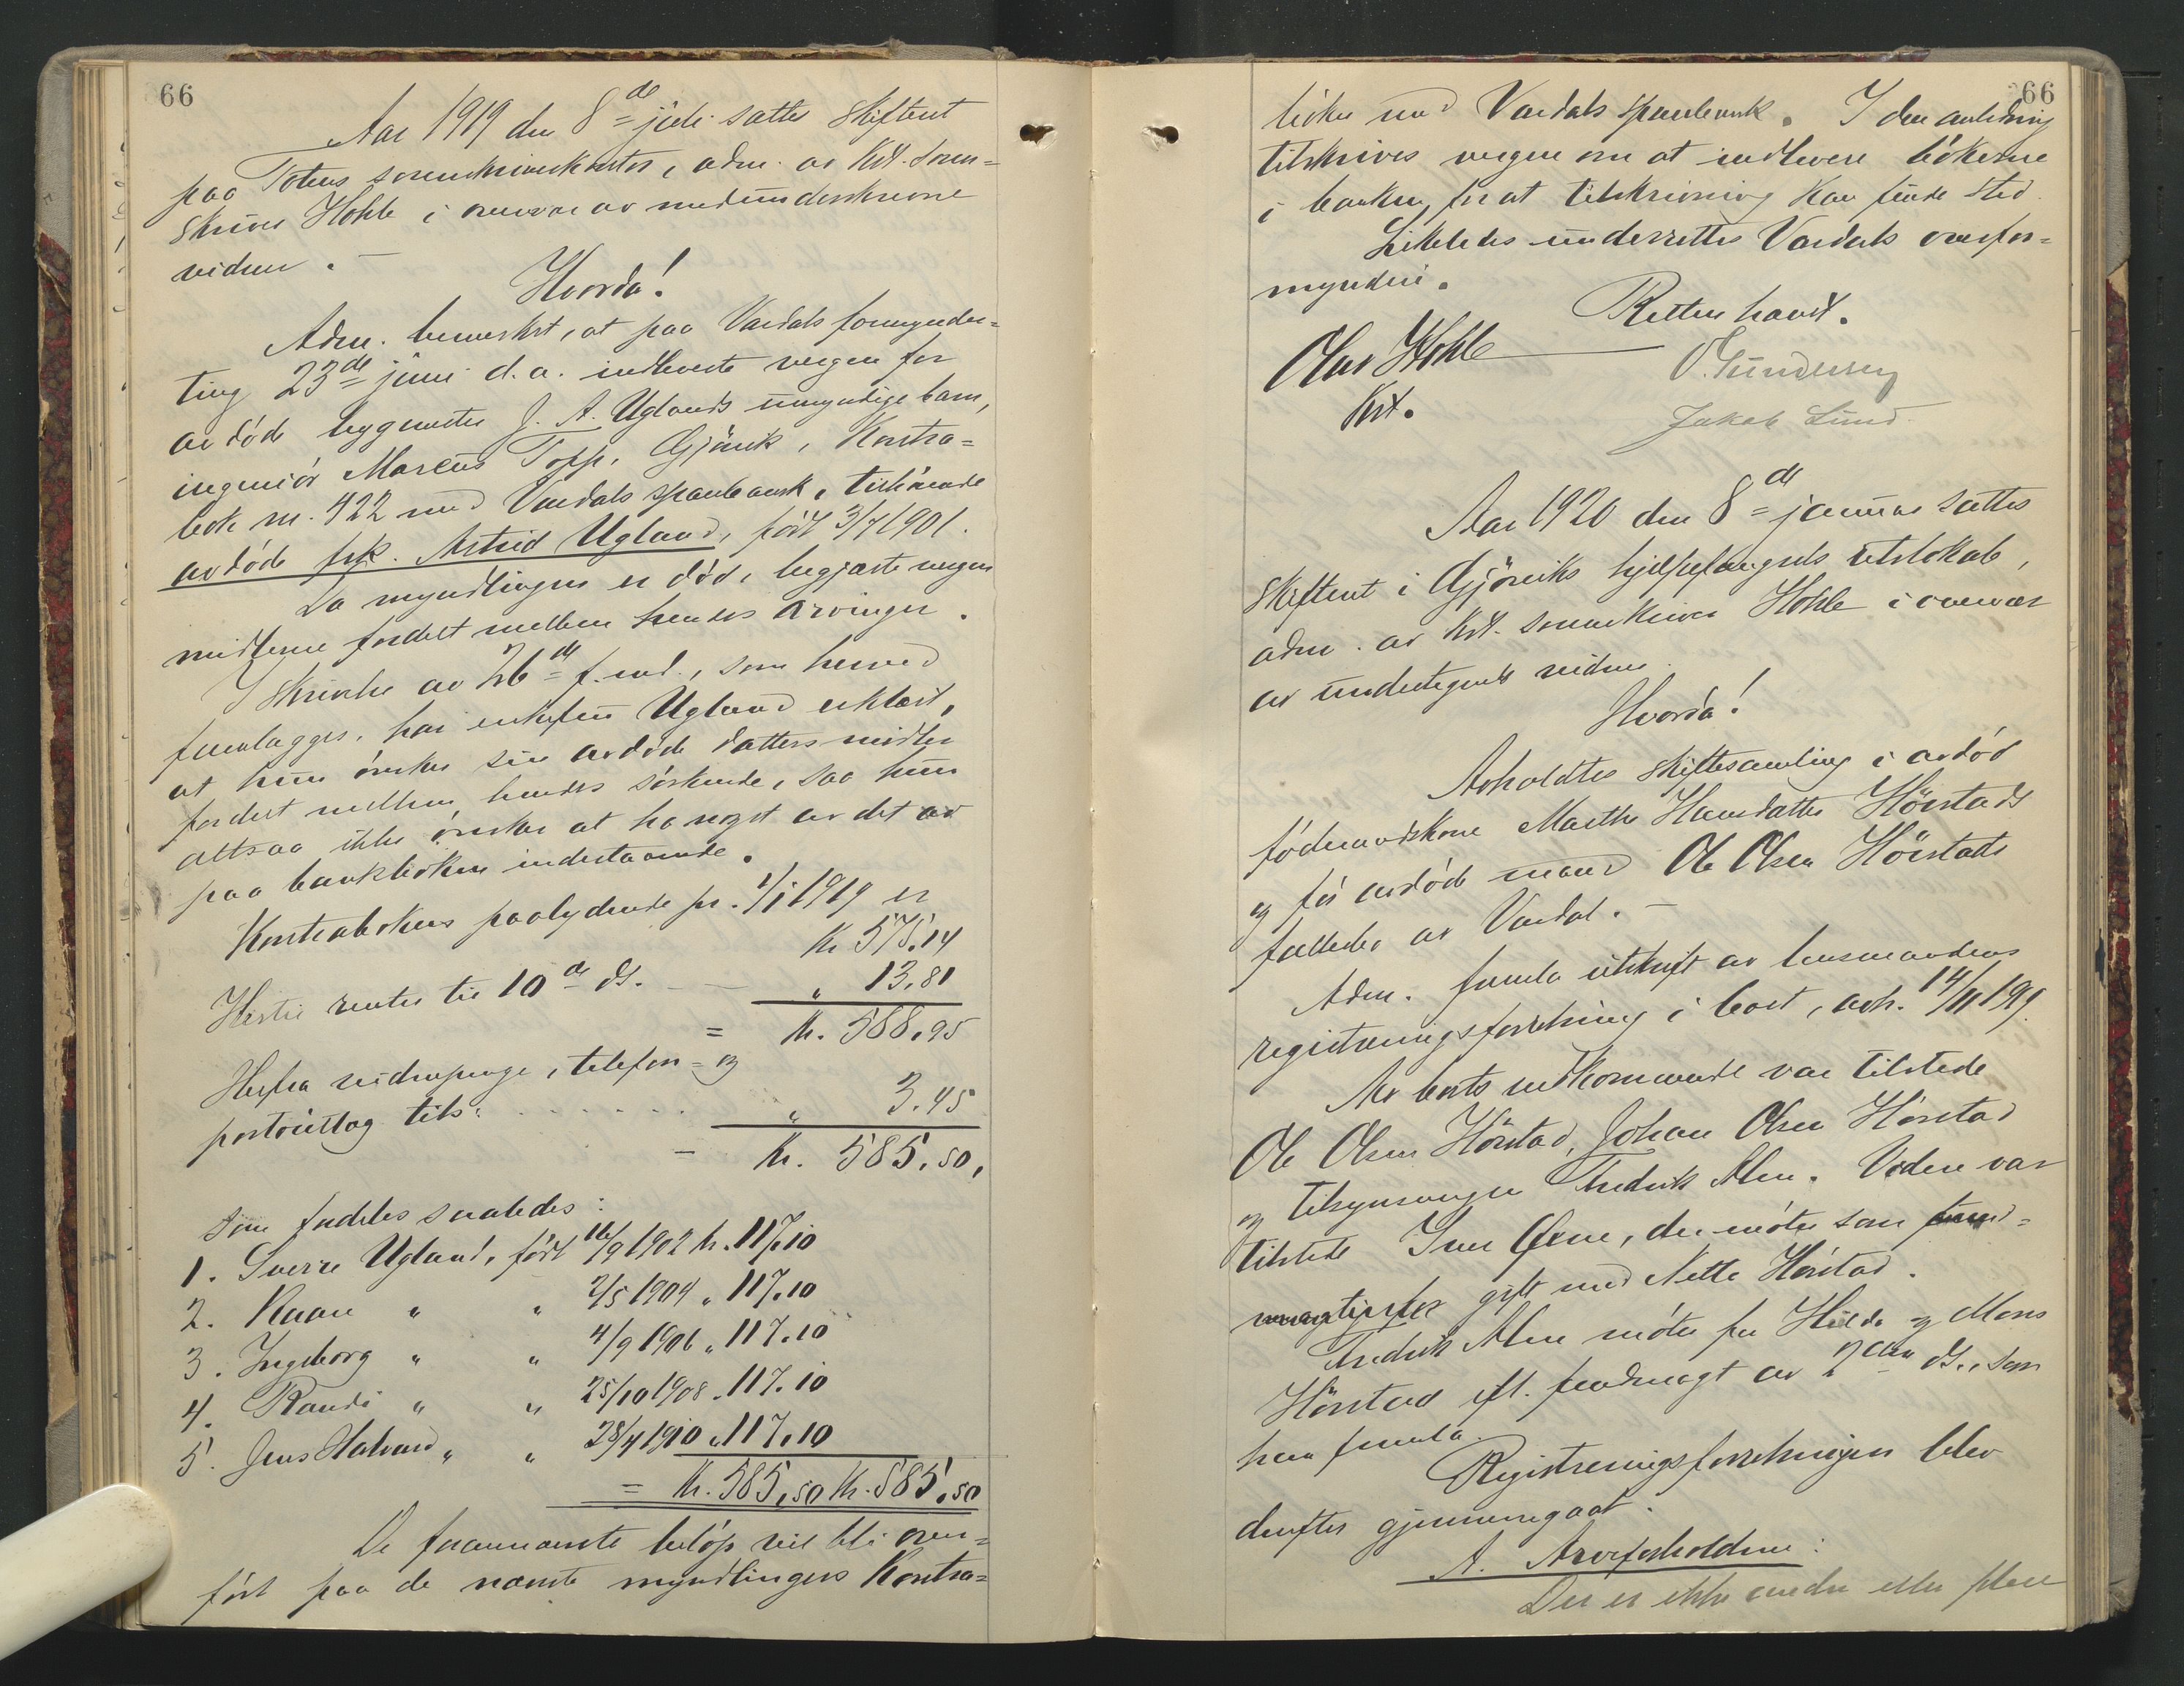 66
Aar 1919 den 8de juli sattes skifteret
paa Totens sorenskriverkontor, adm. av kst. soren-
skriver Hohle i overvær av medunderskrevne
vidner. —
Hvorda!
Adm. bemerket, at paa Vardals formynder-
ting 23de juni d.a. indleverte vergen for
avdøde bygmester J. A. Uglands umyndige barn,
ingeniør Marcus Topp, Gjøvik, Kontra-
bok nr. 422 med Vardals sparebank, tilhørende
avdøde frk. Astrid Ugland, født 3/7 1901.
Da myndlingen er død, begjærte vergen
midlerne fordelt mellem hendes arvinger.
I skrivelse av 26de f. md., som herved
fremlægges, har enkefru Ugland erklært,
at hun ønsker sin avdøde datters midler
fordelt mellem hendes søskende, saa hun
altsaa ikke ønsker at ha noget av det av
paa bankboken indestaaende.
Kontrabokens paalydende pr. 1/1 1919 er
kr. 575.14
Hertil renter til 10de ds. — „ 13.81
= kr. 588.95
Herfra vidnepenge, telefon- og
portoutlæg tils. . . . . . „ 3.45
— kr. 585.50,
som fordeles saaledes:
1. Sverre Ugland, født 16/9 1902 kr. 117.10
2. Kaare „ „ 2/5 1904 „ 117.10
3. Ingeborg „ „ 4/9 1906 „ 117.10
4. Randi „ „ 25/10 1908 „ 117.10
5. Jens Halvard „ „ 28/4 1910 „ 117.10
= kr. 585,50 kr. 585.50
De foranævnte beløp vil bli over-
ført paa de nævnte myndlingers Kontra-
66
bøker med Vardals sparebank. I den anledning
tilskrives vergen om at indlevere bøkerne
i banken, for at tilskrivning kan finde sted.
Likeledes underrettes Vardals overfor-
mynderi.
Retten hævet.
Olav Hohle
kst.
O. Gundersen
Jakob Lund.
Aar 1920 den 8de januar sattes
skifteret i Gjøviks hjelpefængsels retslokale,
adm. av kst. sorenskriver Hohle i overvær
av undertegnede vidner.
Hvorda!
Avholdtes skiftesamling i avdød
føderaadskone Marthe Hansdatter Hørstads
og før avdøde mand Ole Olsen Hørstads
fællesbo av Vardal. —
Adm. fremla utskrift av lensmandens
registreringsforretning i boet, avh. 14/11 1919.
Av boets vedkommende var tilstede
Ole Olsen Hørstad, Johan Olsen Hørstad
og tilsynsvergen Fredrik Alm. Videre var
tilstede Iver , der møter som
gift med Nette Hørstad.
Fredrik Alm møter for Hilda og Mons
Hørstad ifl. fuldmagt av 2den ds., som
han fremla.
Registreringsforretningen blev
derefter gjennemgaat.
A. Arveforholdene:
Der er ikke andre eller flere